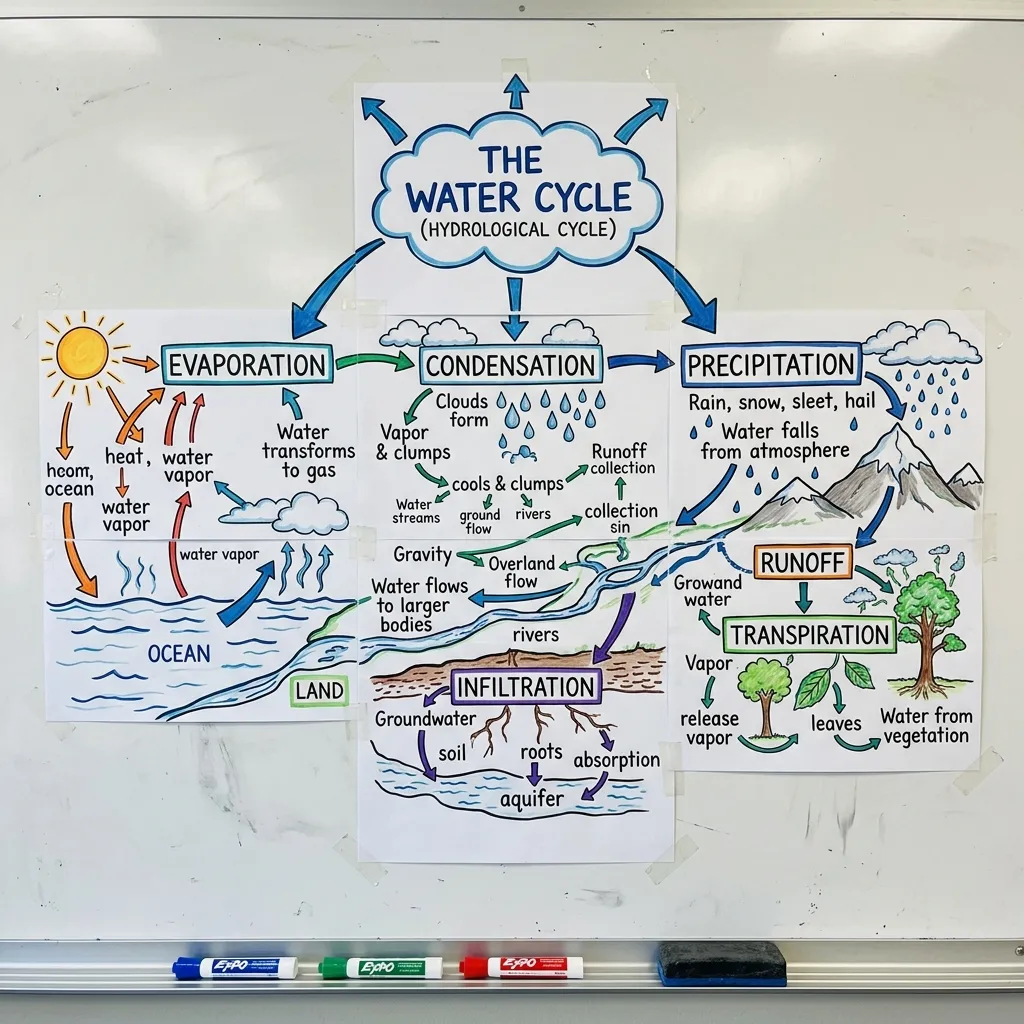 THE
WATER CYCLE
(HYDROLOGICAL CYCLE)
EVAPORATION
heom,
ocean
heat,
water
vapor
water
vapor
Water
transforms
to gas
water vapor
OCEAN
LAND
CONDENSATION
Clouds
form
Vapor
& clumps
cools & clumps
Water
streams
ground
flow
rivers
Runoff
collection
collection
sin
Gravity
Overland
flow
Water flows
to larger
bodies
rivers
INFILTRATION
Groundwater
soil
roots
absorption
aquifer
PRECIPITATION
Rain, snow, sleet, hail
Water falls
from atmosphere
RUNOFF
Growand
water
TRANSPIRATION
Vapor
release
vapor
leaves
Water from
vegetation
EXPO
EXPO
EXPO